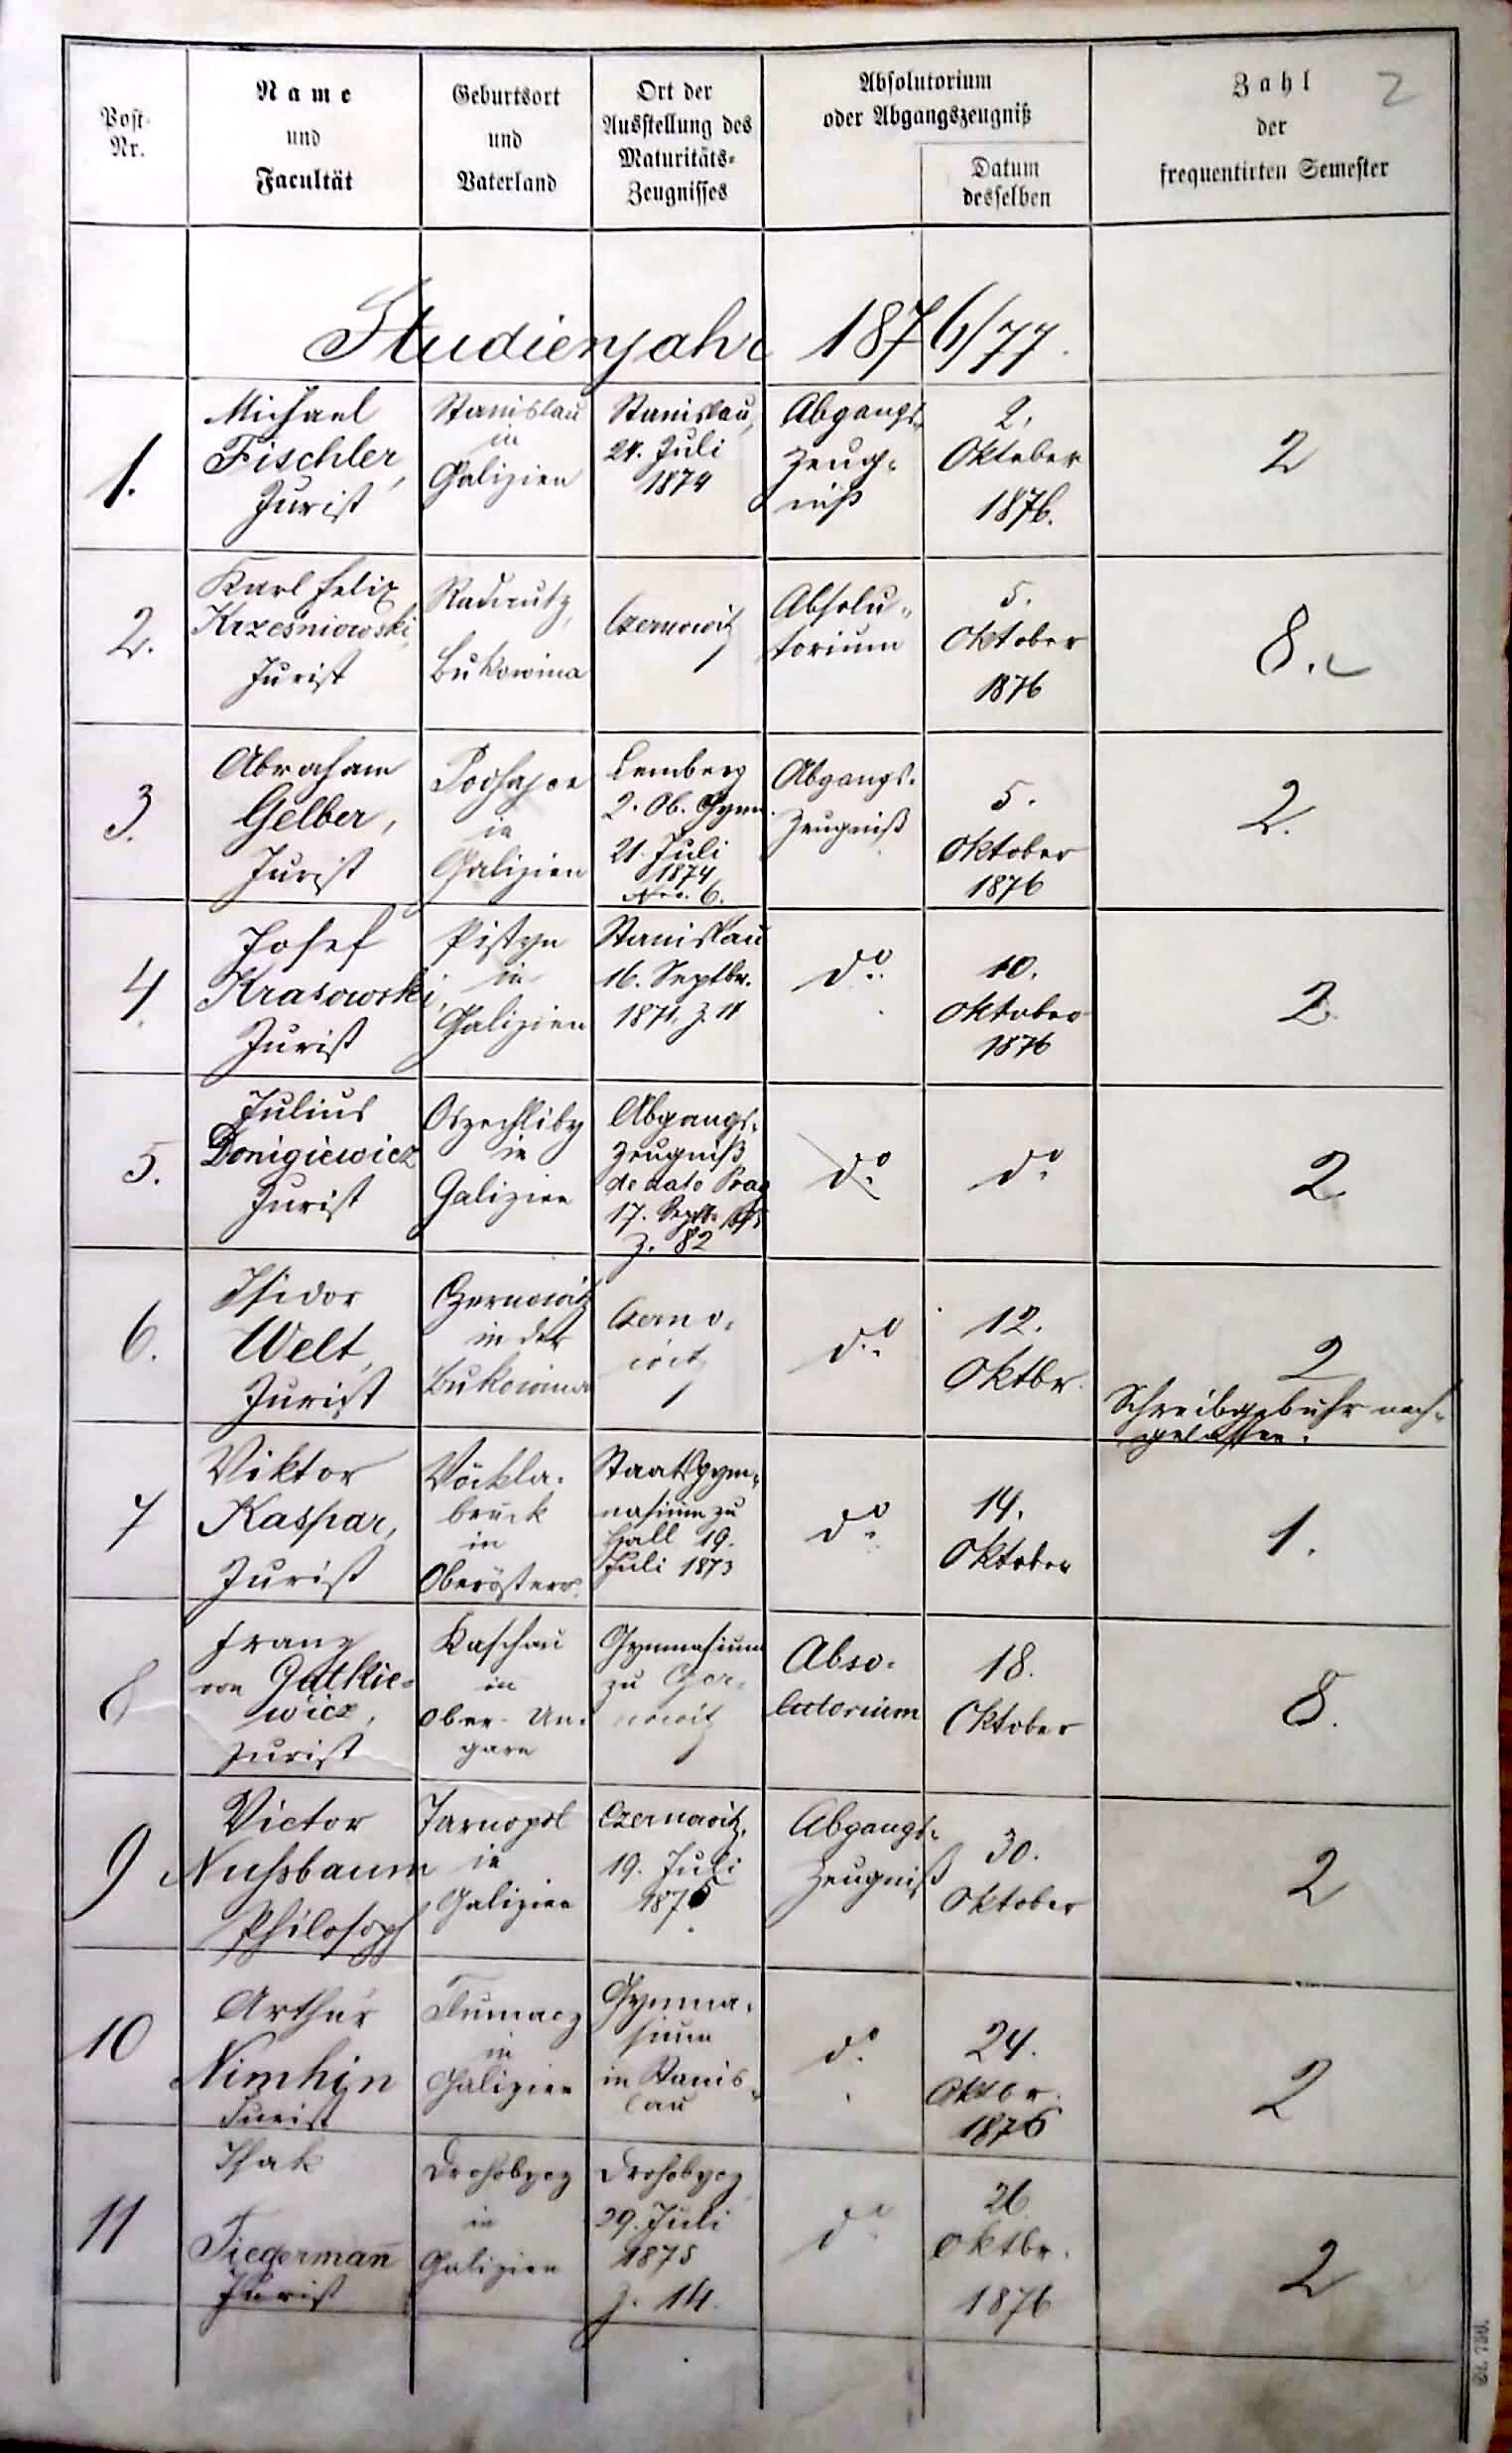 2
Post-
Nr.
Name
und
Facultät
Geburtsort
und
Vaterland
Ort der
Ausstellung des
Maturitäts-
Zeugnisses
Absolutorium
oder Abgangszeugniß
Datum
desselben
Zahl
der
frequentirten Semester
Studienjahr 1876/77.
1.
Michael
Fischler,
Jurist
Stanislau
in
Galizien
Stanislau,
24. Juli
1874
Abgangs-
zeug-
niß
2.
Oktober
1876.
2
2.
Karl Felix
Krzesniowski,
Jurist
Radautz,
Bukowina
Czernowitz
Absolu-
torium
5.
Oktober
1876
8.
3.
Abraham
Gelber,
Jurist
Podhajce
in
Galizien
Lemberg
2. Ob. Gymn.
21. Juli
1874
Nro. 6.
Abgangs-
Zeugniß
5.
Oktober
1876
2.
4.
Josef
Krasowski,
Jurist
Pistyn
in
Galizien
Stanislau
16. Septbr.
1871, Z. 11
do.
10.
Oktober
1876
2.
5.
Julius
Donigiewicz
Jurist
Oszechliby
in
Galizien
Abgangs-
Zeugniß
de dato Prag
17. Septb. 1875
Z. 82
do.
do.
2.
6.
Isidor
Welt,
Jurist
Czernowitz
in der
Bukowina
Czerno-
witz
do.
12.
Oktbr.
2
Schreibgebühr nach-
gelassen.
7
Viktor
Kaspar,
Jurist
Vöckla-
bruck
in
Oberösterr.
Staatsgym-
nasium zu
Hall 19.
Juli 1873
do.
14.
Oktober
1.
8
Franz
von Gutkie-
wicz,
Jurist
Kaschau
in
Ober-Un-
garn
Gymnasium
zu Czer-
nowitz
Abso-
lutorium
18.
Oktober
8.
9
Victor
Nuhsbaum
Philosoph
Tarnopol
in
Galizien
Czernowitz,
19. Juli
1875
Abgangs-
Zeugniß
30.
Oktober
2
10
Arthur
Nimhin
Jurist
Tlumacz
in
Galizien
Gymna-
sium
in Stanis-
lau
do.
24.
Oktbr.
1876
2
11
Isak
Tiegermañ
Jurist
Drohobycz
in
Galizien
Drohobycz
29. Juli
1875
Z. 14.
do.
26
Oktbr.
1876
2